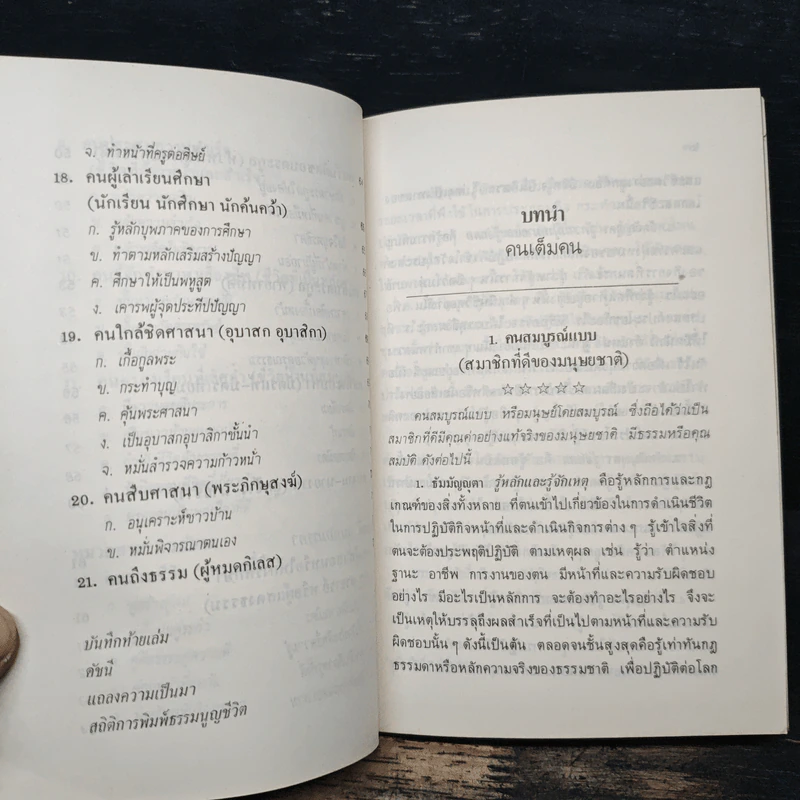 จ. ทำหน้าที่ครูต่อศิษย์
18. คนผู้เล่าเรียนศึกษา
(นักเรียน นักศึกษา นักค้นคว้า)
ก. รู้หลักบุพภาคของการศึกษา
ข. ทำตามหลักเสริมสร้างปัญญา
ค. ศึกษาให้เป็นพหูสูต
ง. เคารพผู้จุดประทีปปัญญา
19. คนใกล้ชิดศาสนา (อุบาสก อุบาสิกา)
ก. เกื้อกูลพระ
ข. กระทำบุญ
ค. คุ้นพระศาสนา
ง. เป็นอุบาสกอุบาสิกาชั้นนำ
จ. หมั่นสำรวจความก้าวหน้า
20. คนสืบศาสนา (พระภิกษุสงฆ์)
ก. อนุเคราะห์ชาวบ้าน
ข. หมั่นพิจารณาตนเอง
21. คนถึงธรรม (ผู้หมดกิเลส)
บันทึกท้ายเล่ม
ดัชนี
แถลงความเป็นมา
สถิติการพิมพ์ธรรมนูญชีวิต
บทนำ
คนเต็มคน
1. คนสมบูรณ์แบบ
(สมาชิกที่ดีของมนุษยชาติ)
☆☆☆☆☆
คนสมบูรณ์แบบ หรือมนุษย์โดยสมบูรณ์ ซึ่งถือได้ว่าเป็น
สมาชิกที่ดีมีคุณค่าอย่างแท้จริงของมนุษยชาติ มีธรรมหรือคุณ
สมบัติ ดังต่อไปนี้
1. ธัมมัญญุตา รู้หลักและรู้จักเหตุ คือรู้หลักการและกฎ
เกณฑ์ของสิ่งทั้งหลาย ที่ตนเข้าไปเกี่ยวข้องในการดำเนินชีวิต
ในการปฏิบัติกิจหน้าที่และดำเนินกิจการต่าง ๆ รู้เข้าใจสิ่งที่
ตนจะต้องประพฤติปฏิบัติ ตามเหตุผล เช่น รู้ว่า ตำแหน่ง
ฐานะ อาชีพ การงานของตน มีหน้าที่และความรับผิดชอบ
อย่างไร มีอะไรเป็นหลักการ จะต้องทำอะไรอย่างไร จึงจะ
เป็นเหตุให้บรรลุถึงผลสำเร็จที่เป็นไปตามหน้าที่และความรับ
ผิดชอบนั้น ๆ ดังนี้เป็นต้น ตลอดจนชั้นสูงสุดคือรู้เท่าทันกฎ
ธรรมดาหรือหลักความจริงของธรรมชาติ เพื่อปฏิบัติต่อโลก